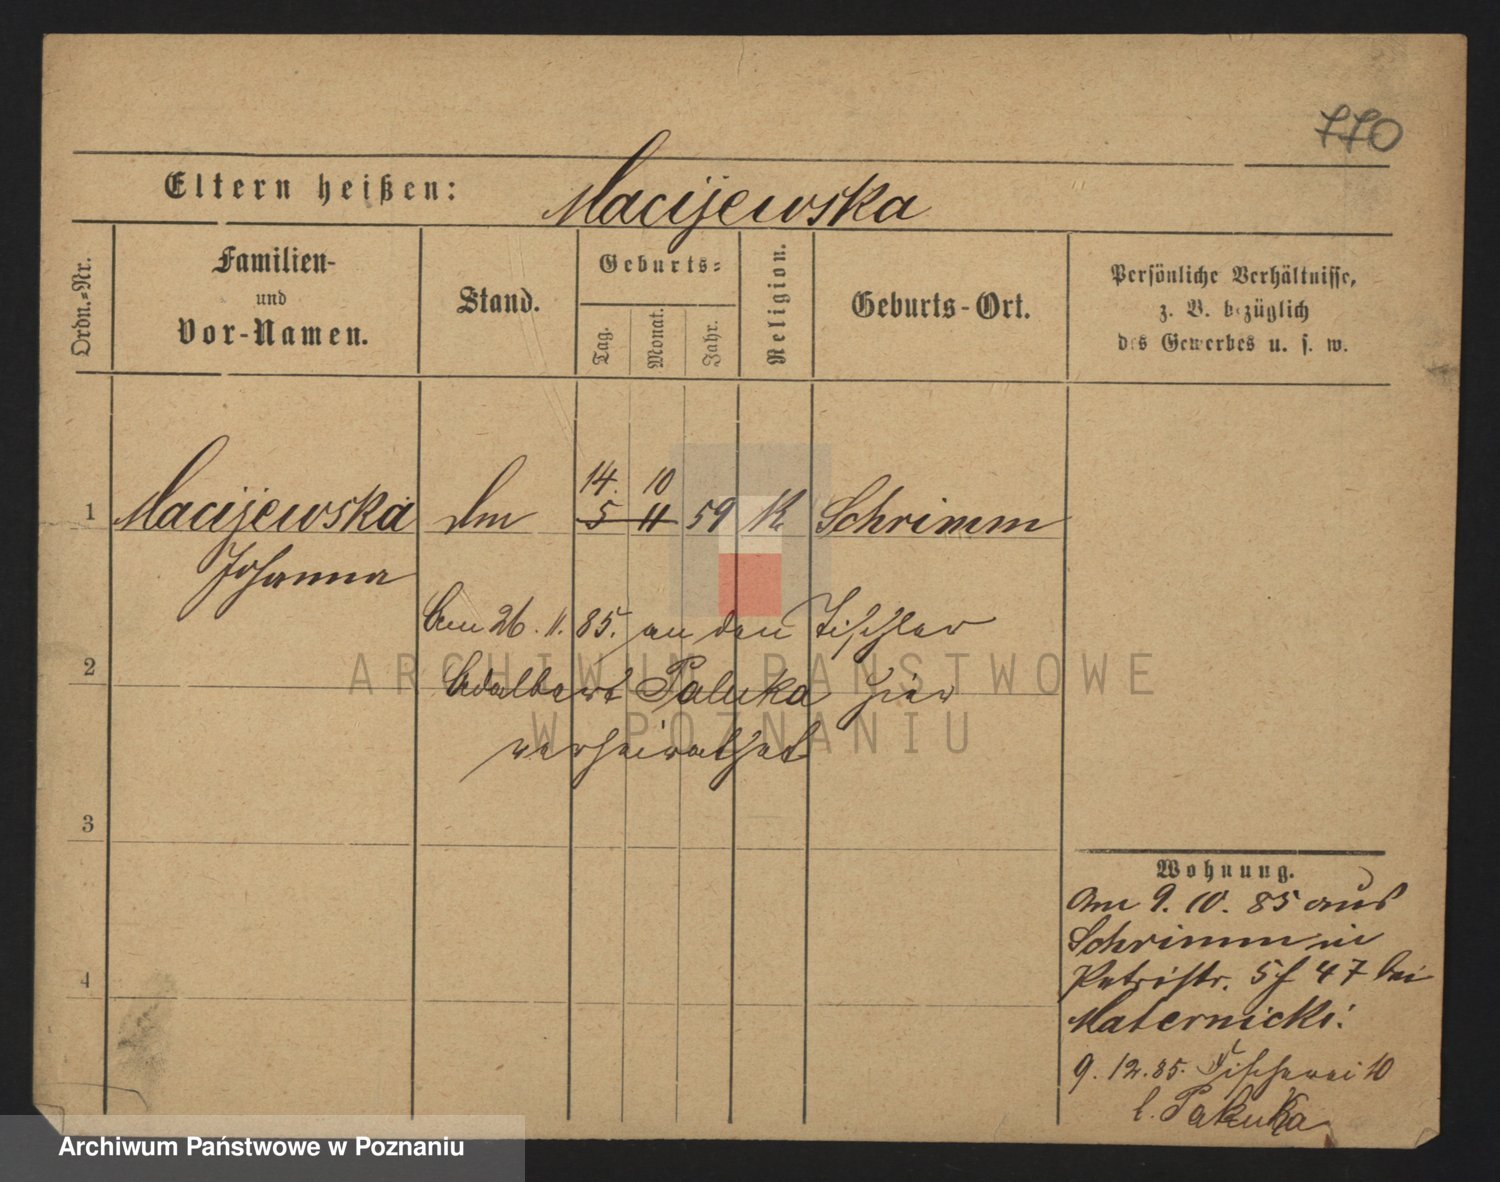 770
Eltern heißen: Macijewska
Ordn.-Nr.
Familien-
und
Vor-Namen.
Stand.
Geburts-
Tag.
Monat.
Jahr.
Religion.
Geburts-Ort.
Persönliche Verhältnisse,
z. B. bezüglich
des Gewerbes u. s. w.
14. 10
1 Macijewska 5 11 59 K. Schrimm
Johanna
Am 26. 11. 85. an den Tischler
2
Adalbert Paluka hier
verheirathet
3
4
Wohnung.
Am 9. 10. 85 aus
Schrimm in
Petristr. 5 f 47 bei
Maternicki.
9. 12. 85. Fischerei 10
ARCHIWUM PAŃSTWOWE
W POZNANIU
Archiwum Państwowe w Poznaniu